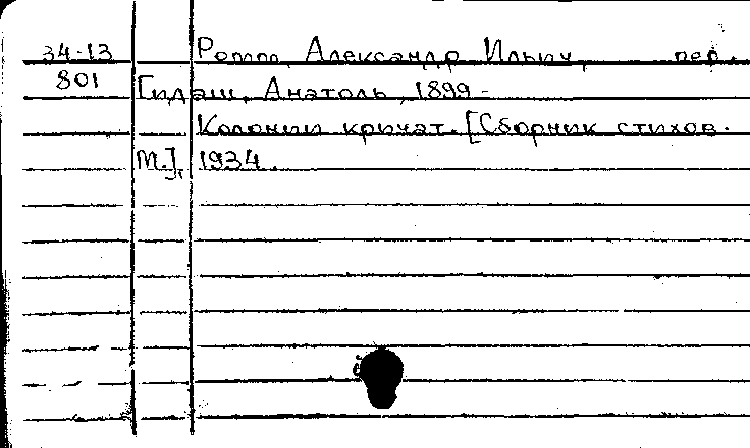 34-13 Ромм, Александр Ильич, пер.
801 Гидаш, Анатоль, 1899-
Колонии кричат. [Сборник стихов.
М.], 1934.